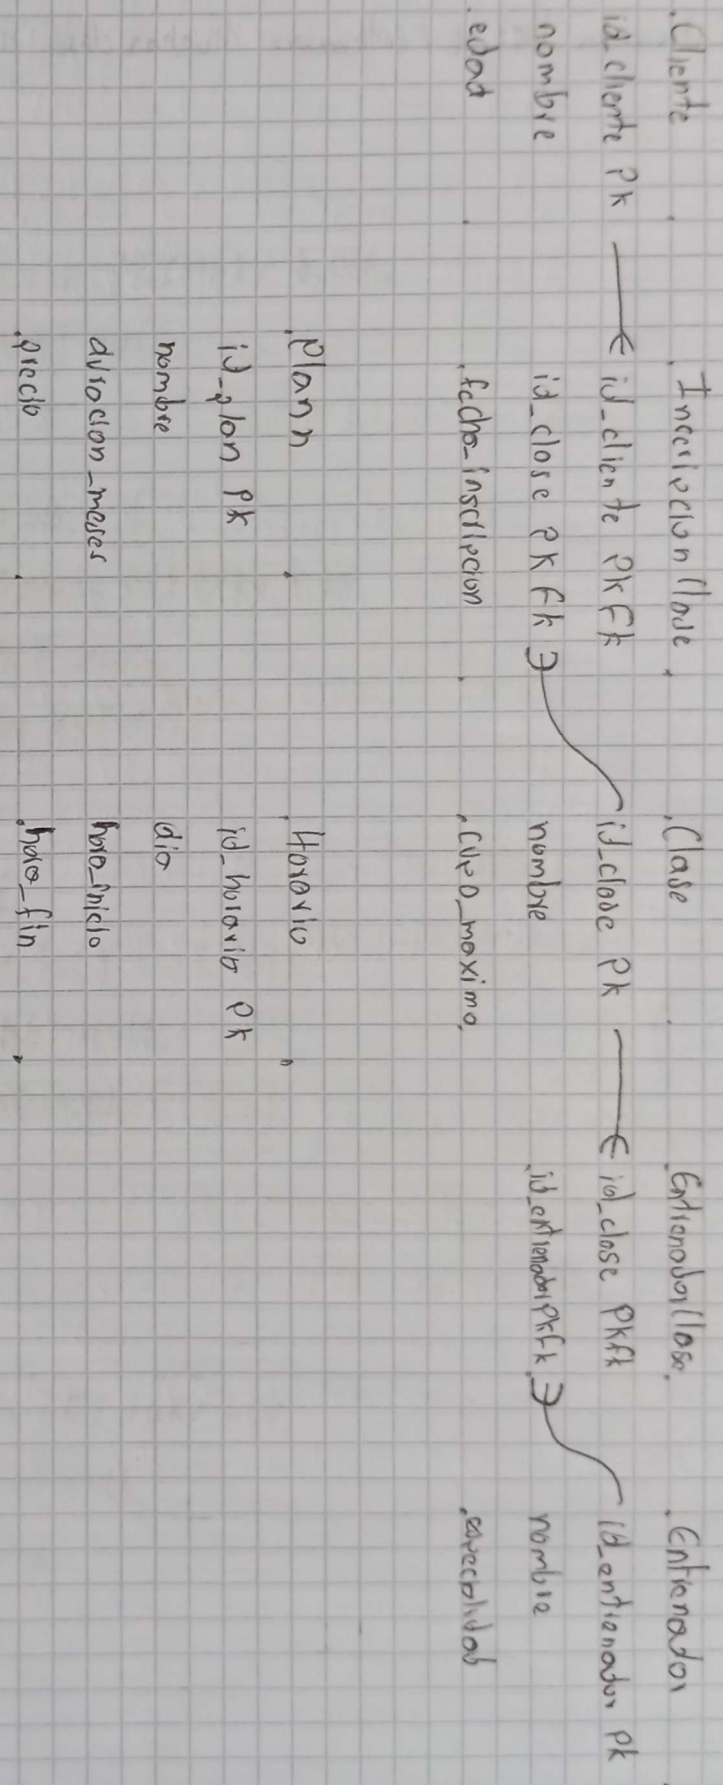 Cliente
id_cliente PK
nombre
edad
Inscripcion Clase
id_cliente PK FK
id_clase PK FK
fecha_inscripcion
Clase
id_clase PK
nombre
cupo_maximo
Entrenador Clase
id_clase PK FK
id_entrenador PK FK
Entrenador
id_entrenador PK
nombre
especialidad
Plann
id_plan PK
nombre
duracion_meses
precio
Horario
id_horario PK
dia
hora_inicio
hora_fin